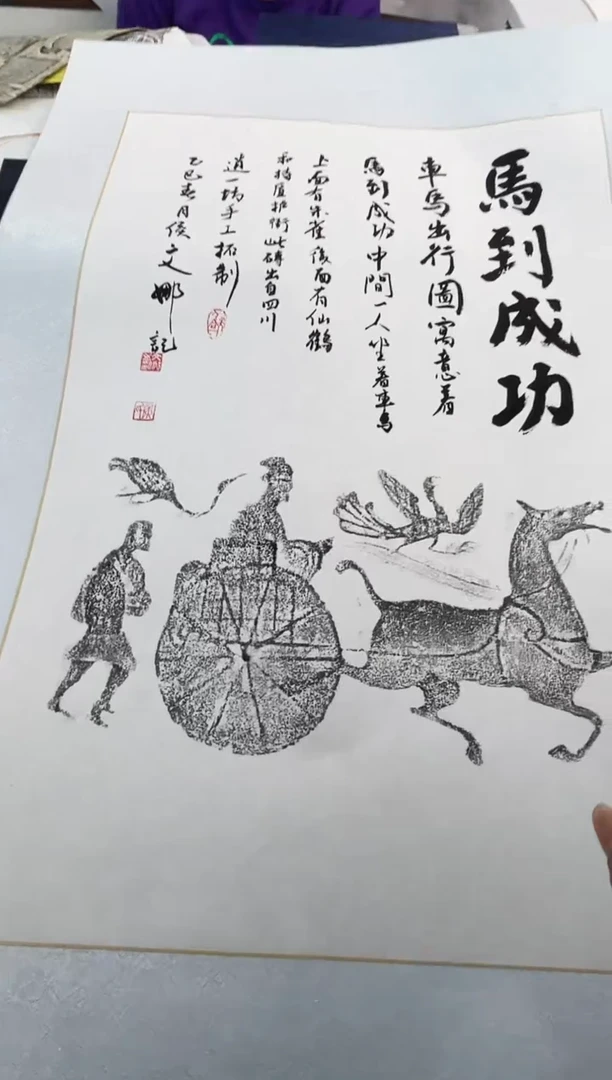 馬到成功
車馬出行圖寓意着
馬到成功中間一人坐着車馬
上面有朱雀後面有仙鶴
和持盾护衛此磚出自四川
道一坊手工拓制
乙巳春月侯文娜記